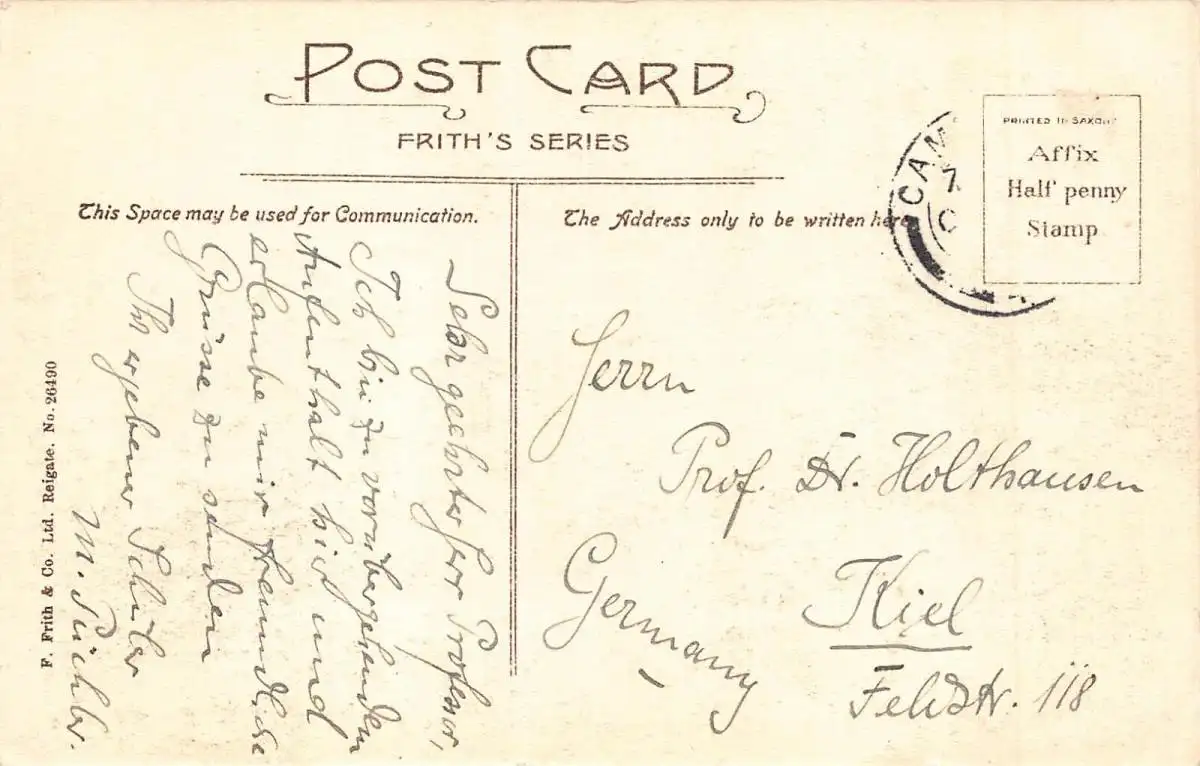 POST CARD
FRITH'S SERIES
This Space may be used for Communication.
The Address only to be written here
PRINTED IN SAXONY
Affix
Half penny
Stamp
CAM
7
Sehr geehrter Herr Professor,
Ich bin zu vorübergehenden
Aufenthalt hier und
erlaube mir freundliche
Grüsse zu senden
Ihr ergebener Schüler
M.
Herrn
Prof. Dr. Holthausen
Kiel
Feldstr. 118
Germany
F. Frith & Co. Ltd. Reigate. No. 26490